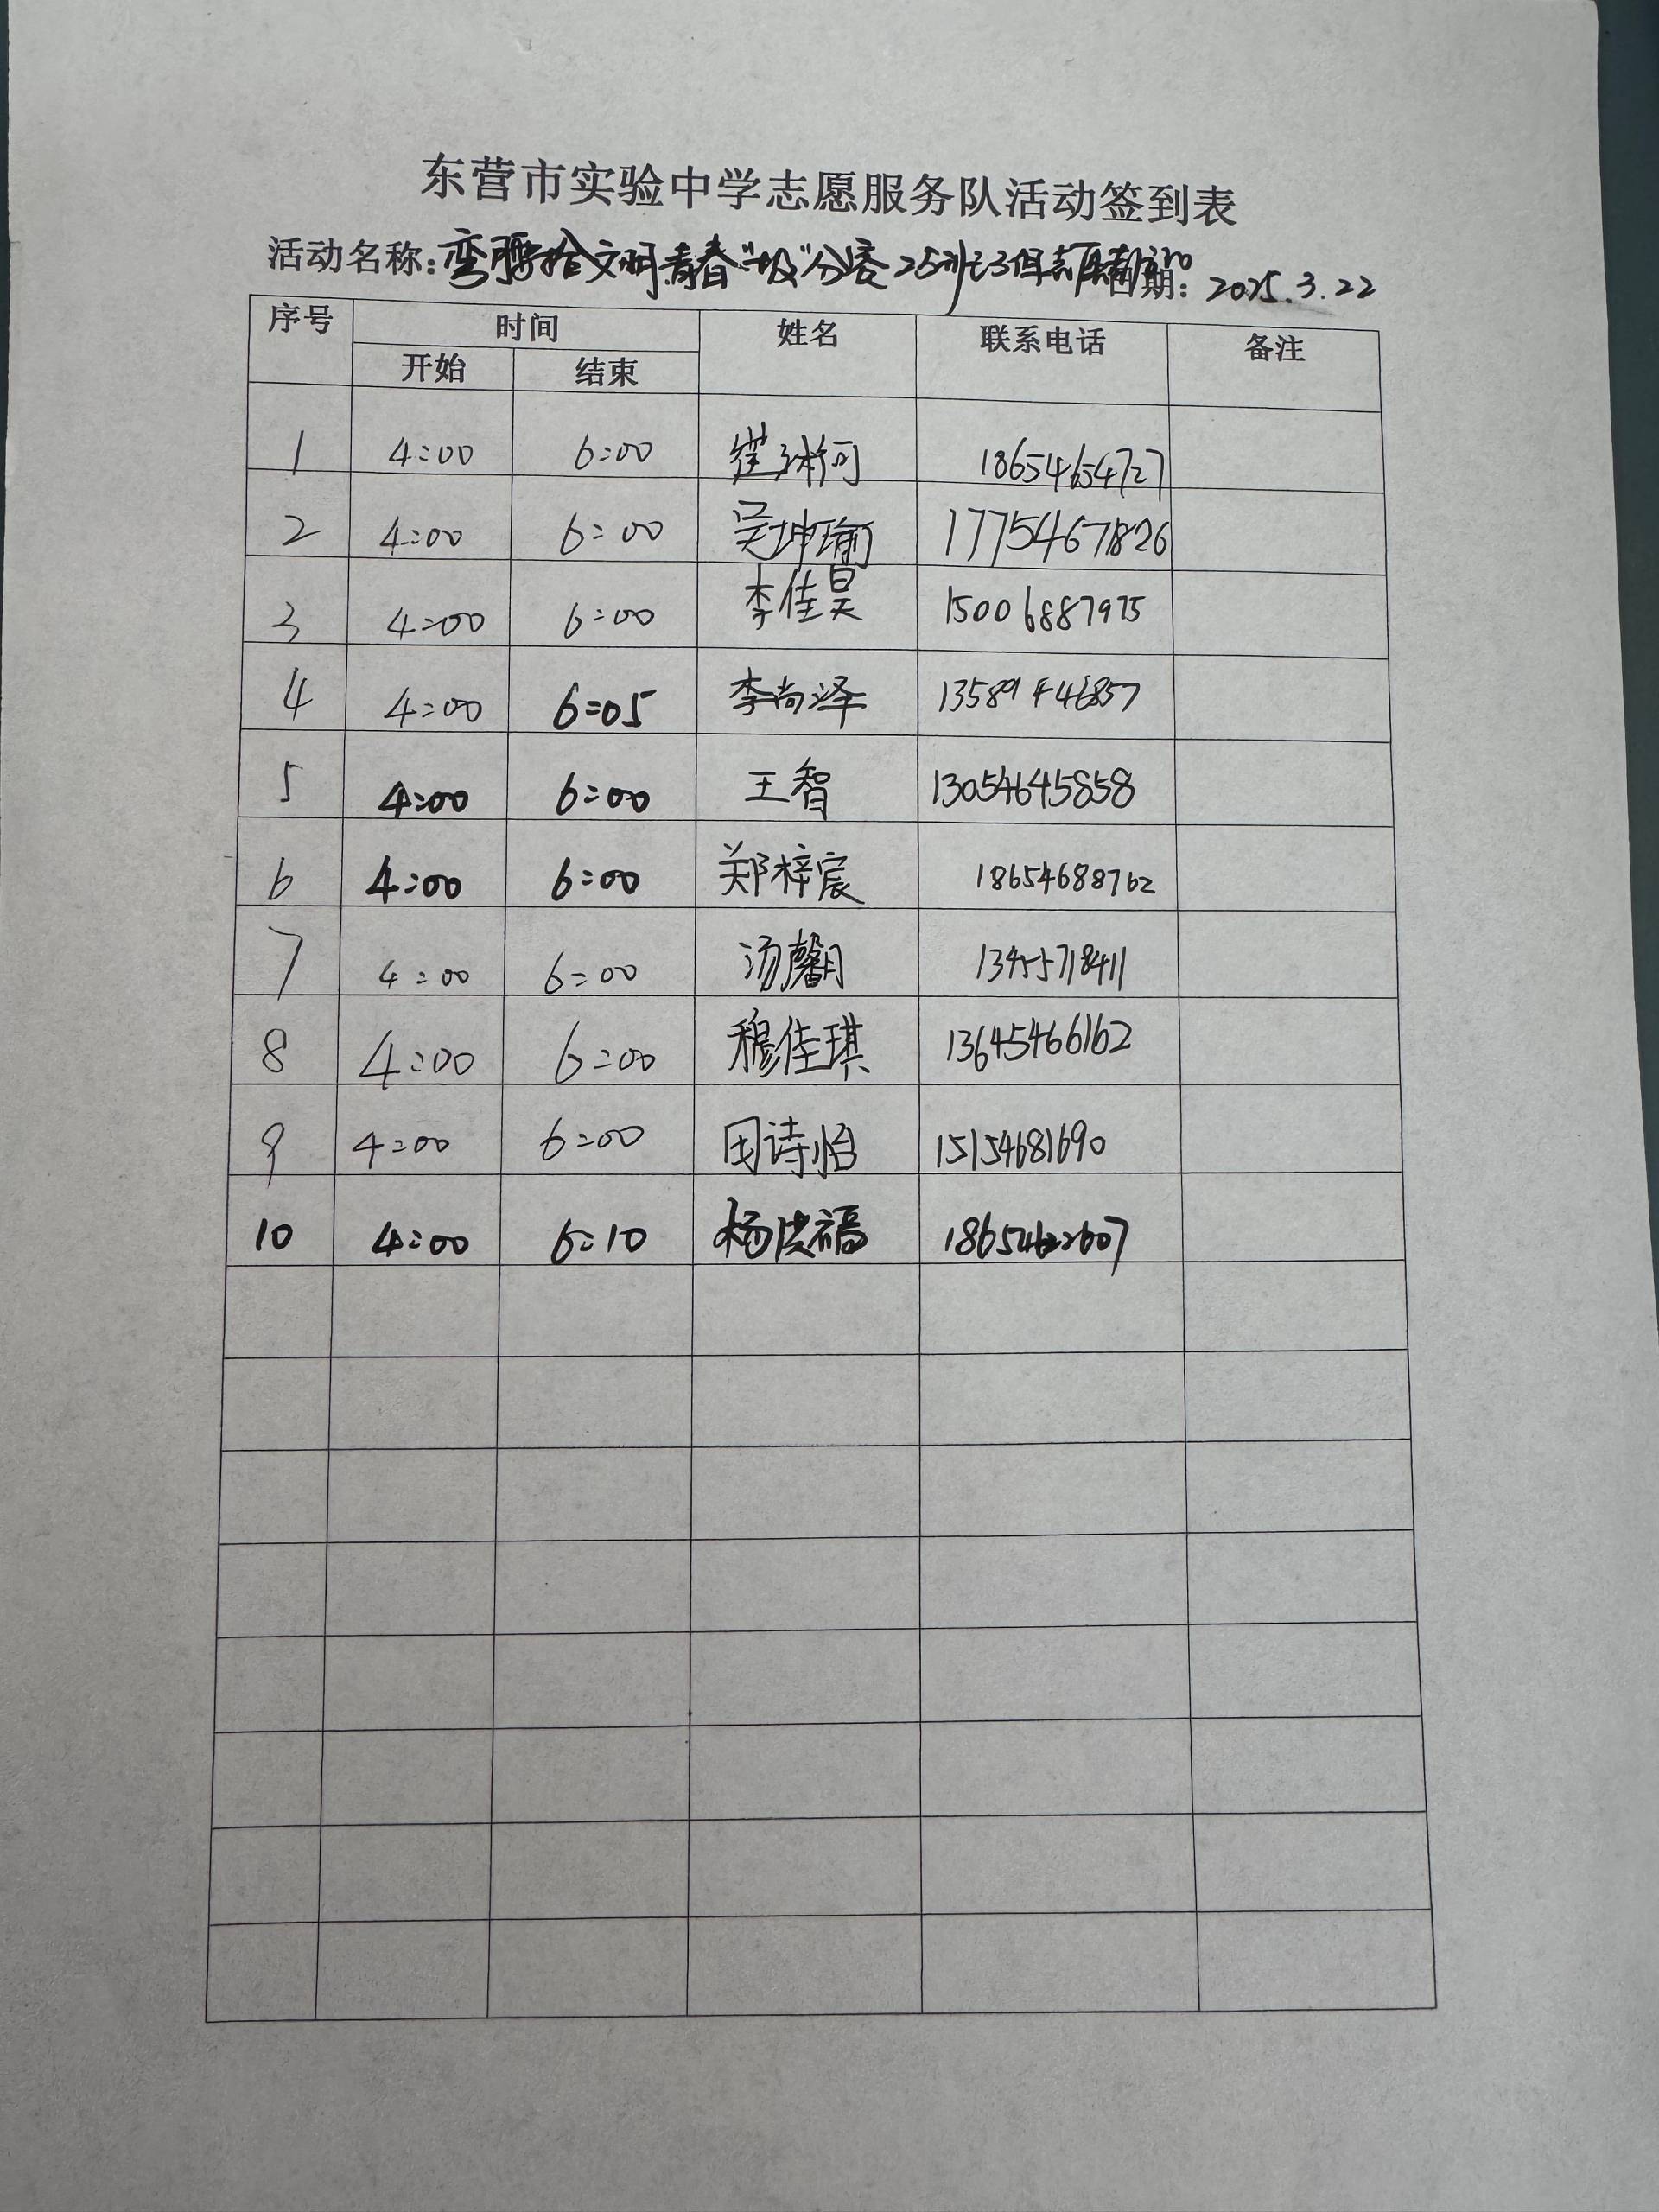 东营市实验中学志愿服务队活动签到表
活动名称:弯腰拾文明 青春"圾"分类 25 日期: 2025.3.22
序号 时间 姓名 联系电话 备注
开始 结束
1 4:00 6:00 崔 18654654727
2 4:00 6:00 吴坤瑜 17754671826
3 4:00 6:00 李佳昊 15006887975
4 4:00 6:05 李尚泽 13589446857
5 4:00 6:00 王智 13054645858
6 4:00 6:00 郑梓宸 18654688762
7 4:00 6:00 汤馨月 13455718411
8 4:00 6:00 穆佳琪 13645466162
9 4:00 6:00 田诗怡 15154681690
10 4:00 6:10 杨洪福